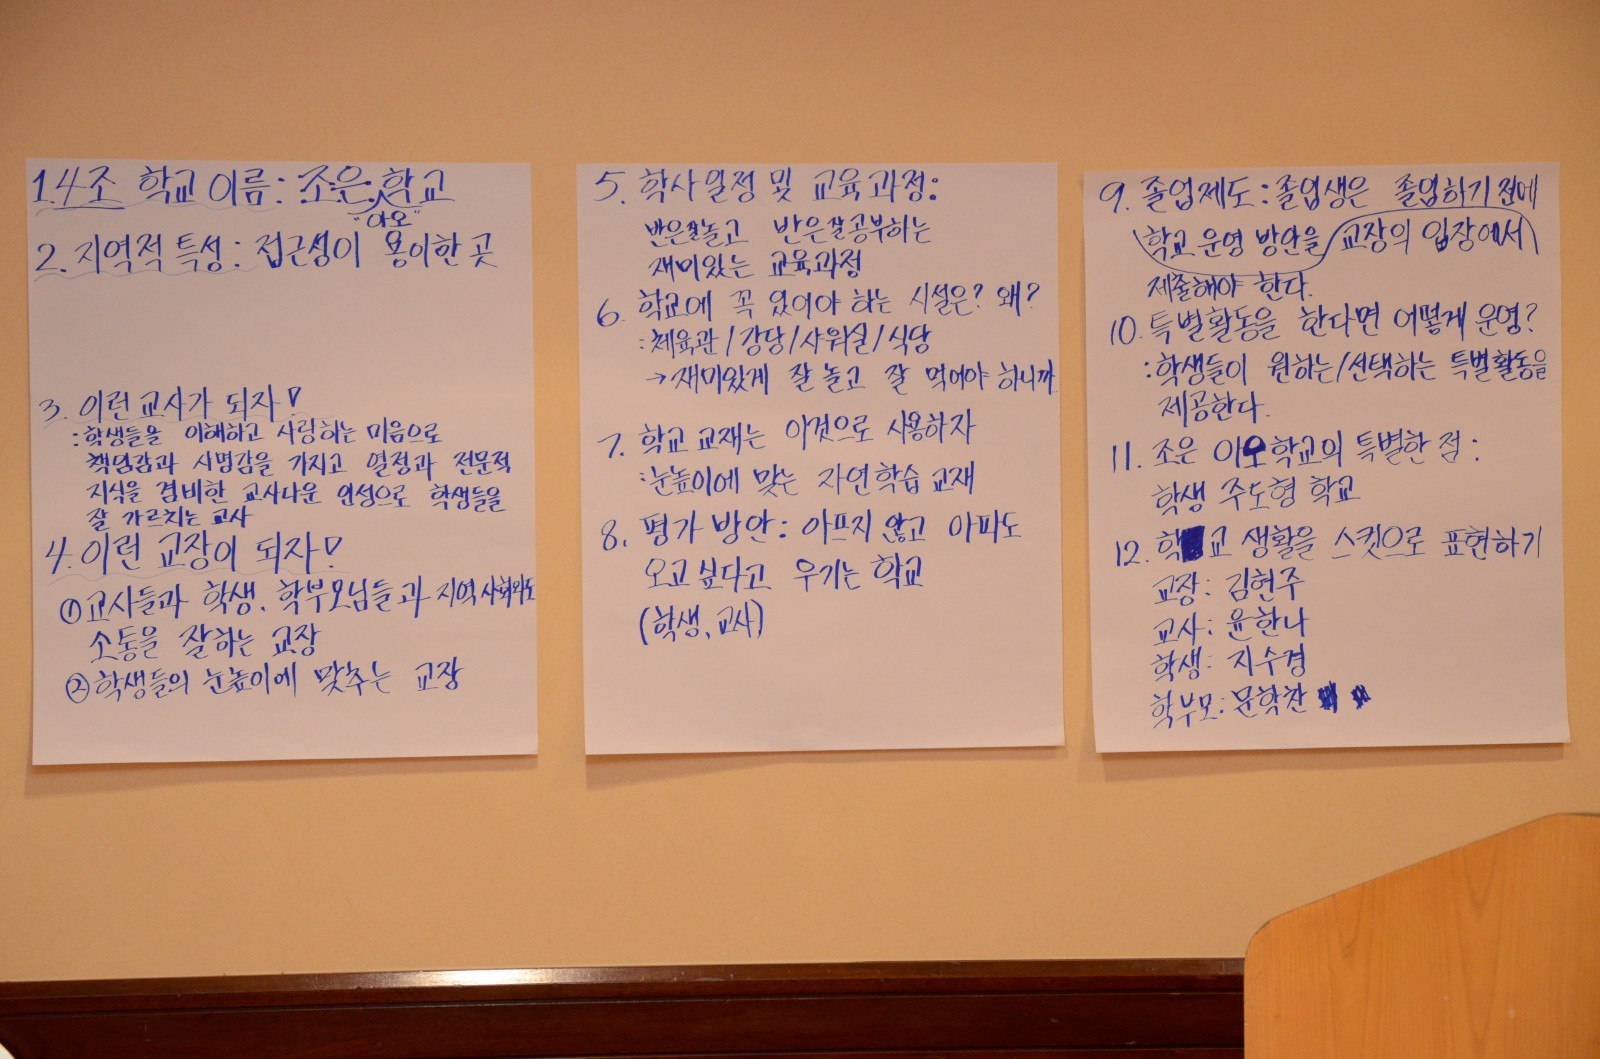 1. 4조 학교 이름: 조은 학교
"이오"
2. 지역적 특성: 접근성이 용이한 곳
3. 이런 교사가 되자!
: 학생들을 이해하고 사랑하는 마음으로
책임감과 사명감을 가지고 열정과 전문적
지식을 겸비한 교사다운 인성으로 학생들을
잘 가르치는 교사
4. 이런 교장이 되자!
① 교사들과 학생, 학부모님들과 지역사회와도
소통을 잘하는 교장
② 학생들의 눈높이에 맞추는 교장
5. 학사일정 및 교육과정:
반은 잘 놀고 반은 잘 공부하는
재미있는 교육과정
6. 학교에 꼭 있어야 하는 시설은? 왜?
: 체육관/강당/샤워실/식당
→ 재미있게 잘 놀고 잘 먹어야 하니까
7. 학교 교재는 이것으로 사용하자
: 눈높이에 맞는 자연학습 교재
8. 평가 방안: 아프지 않고 아파도
오고 싶다고 우기는 학교
(학생, 교사)
9. 졸업제도: 졸업생은 졸업하기 전에
학교 운영 방안을 교장의 입장에서
제출해야 한다.
10. 특별활동을 한다면 어떻게 운영?
: 학생들이 원하는/선택하는 특별활동을
제공한다.
11. 조은 이오학교의 특별한 점:
학생 주도형 학교
12. 학교 생활을 스킷으로 표현하기
교장: 김현주
교사: 윤한나
학생: 지수경
학부모: 문학찬